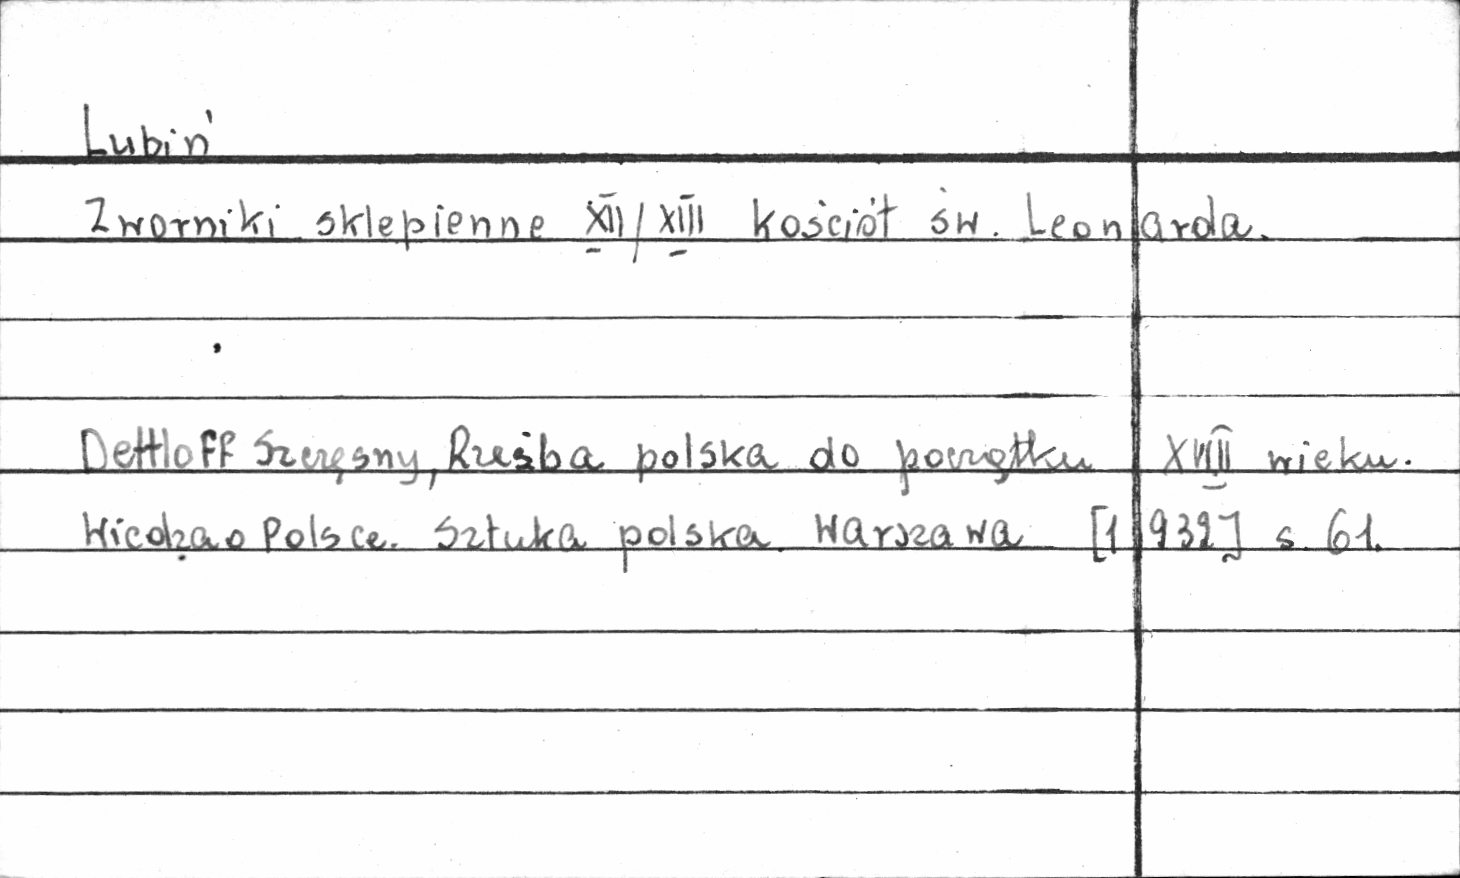 Lubiń
Zworniki sklepienne XII/XIII kościół św. Leonarda.
Dettloff Szczęsny, Rzeźba polska do początku XVIII wieku.
Wiedza o Polsce. Sztuka polska. Warszawa [1932] s. 61.